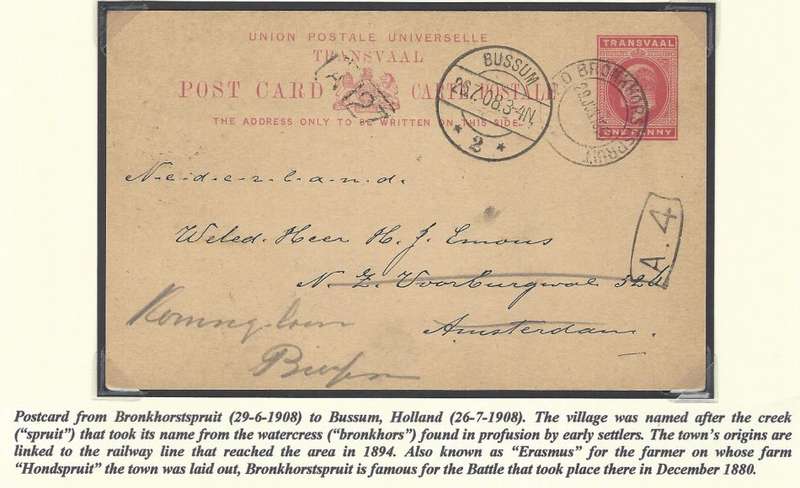 UNION POSTALE UNIVERSELLE
TRANSVAAL
POST CARD CARTE POSTALE
THE ADDRESS ONLY TO BE WRITTEN ON THIS SIDE
A127
BUSSUM
26.7.08.3-4N.
* 2 *
BRONKHORSTSPRUIT
TRANSVAAL
ONE PENNY
A.4
N-e-d-e-r-l-a-n-d.
Weled. Heer H. J. Emous
N. Z. Voorburgwal 324
Amsterdam.
Postcard from Bronkhorstspruit (29-6-1908) to Bussum, Holland (26-7-1908). The village was named after the creek
(“spruit”) that took its name from the watercress (“bronkhors”) found in profusion by early settlers. The town's origins are
linked to the railway line that reached the area in 1894. Also known as “Erasmus” for the farmer on whose farm
“Hondspruit” the town was laid out, Bronkhorstspruit is famous for the Battle that took place there in December 1880.